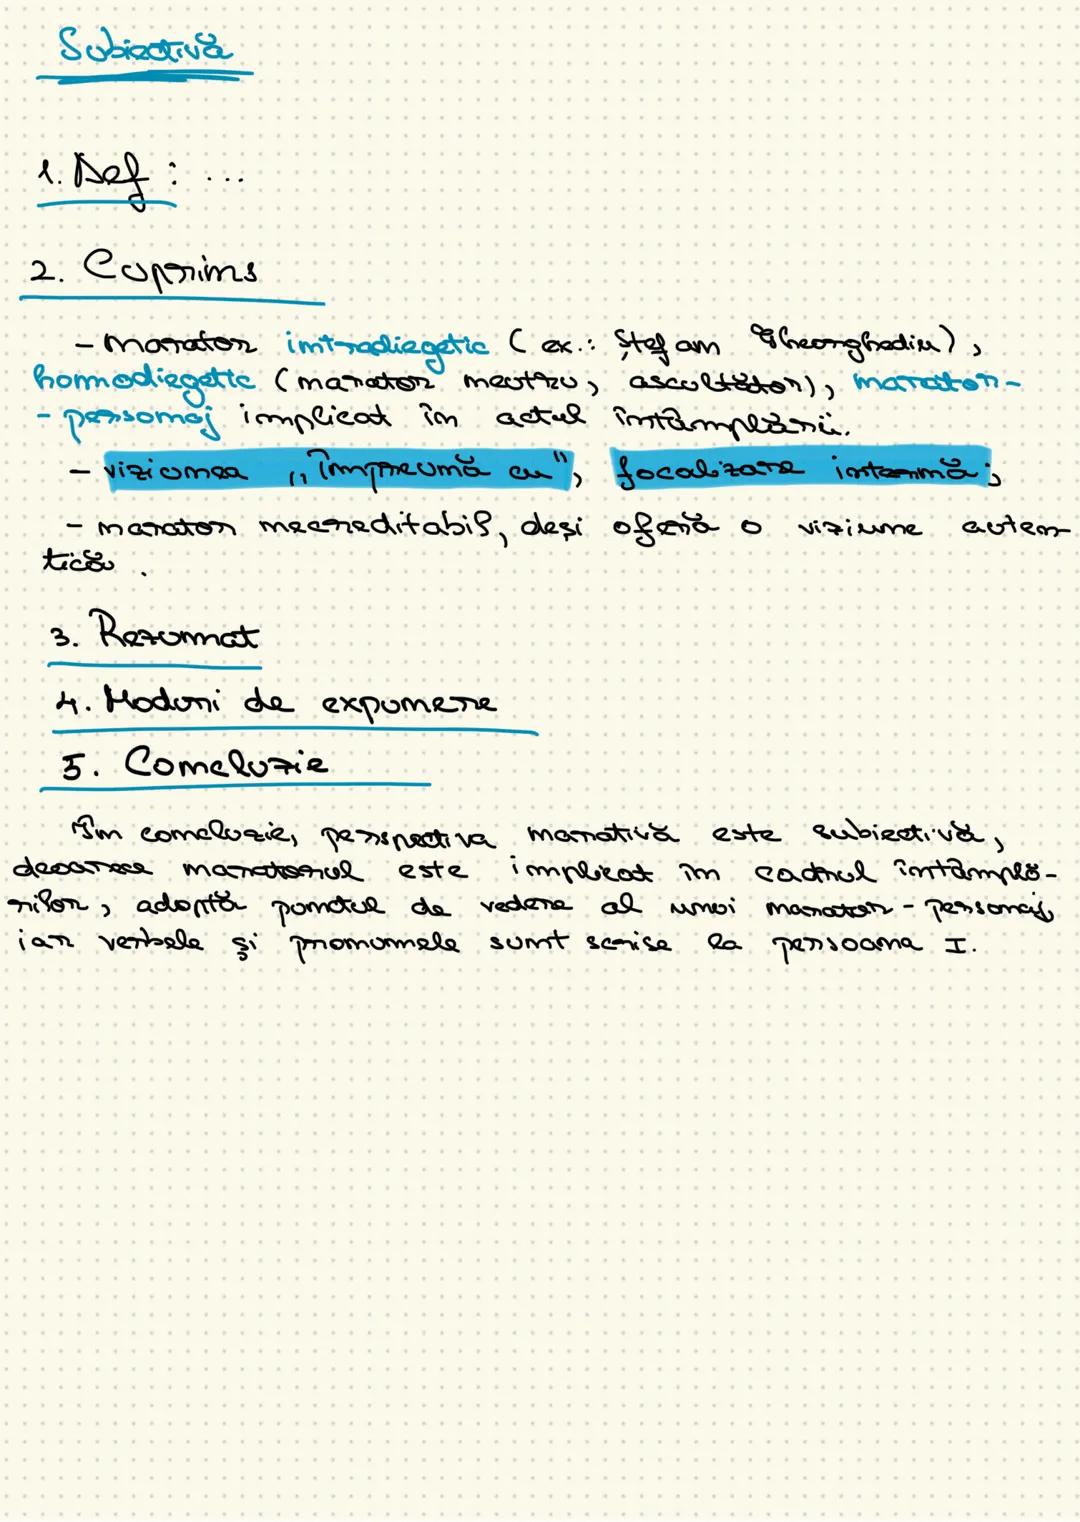 Subiectivă
1. Def : ...
2. Cuprins
- narator intradiegetic ( ex.: Ștefan Gheorghidiu ),
homodiegetic ( narator neutru, ascultător ), narator-
- personaj implicat în actul întâmplării.
- viziunea „Împreună cu", focalizare internă;
- narator necreditabil, deși oferă o viziune auten-
tică .
3. Rezumat
4. Moduri de expunere
5. Concluzie
În concluzie, perspectiva narativă este subiectivă,
deoarece naratorul este implicat în cadrul întâmplă-
rilor, adoptă punctul de vedere al unui narator - personaj,
iar verbele și pronumele sunt scrise la persoana I.